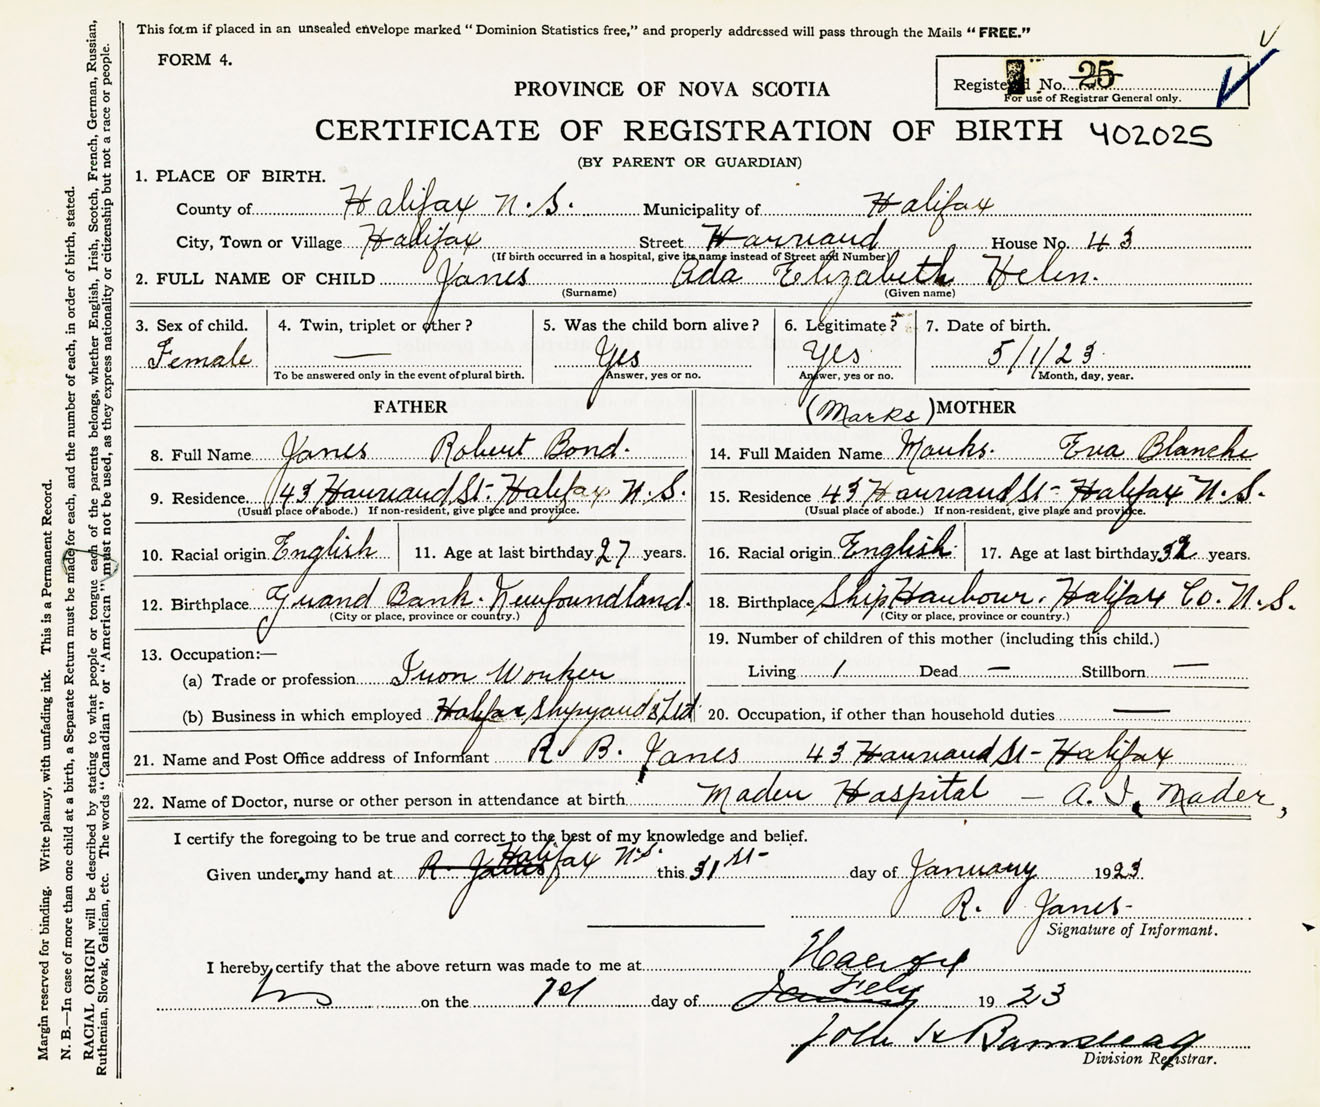 This form if placed in an unsealed envelope marked "Dominion Statistics free," and properly addressed will pass through the Mails "FREE."
FORM 4.
Registered No. 25
For use of Registrar General only.
PROVINCE OF NOVA SCOTIA
CERTIFICATE OF REGISTRATION OF BIRTH 402025
(BY PARENT OR GUARDIAN)
1. PLACE OF BIRTH.
County of Halifax N.S. Municipality of Halifax
City, Town or Village Halifax Street Harvard House No. 43
(If birth occurred in a hospital, give its name instead of Street and Number)
2. FULL NAME OF CHILD Janes Ada Elizabeth Helen.
(Surname) (Given name)
3. Sex of child. 4. Twin, triplet or other? 5. Was the child born alive? 6. Legitimate? 7. Date of birth.
Female — Yes Yes 5/1/23
To be answered only in the event of plural birth. Answer, yes or no. Answer, yes or no. Month, day, year.
FATHER (Marks) MOTHER
8. Full Name Janes Robert Bond. 14. Full Maiden Name Marks. Eva Blanche
9. Residence. 43 Harvard St- Halifax N.S. 15. Residence 43 Harvard St- Halifax N.S.
(Usual place of abode.) If non-resident, give place and province. (Usual place of abode.) If non-resident, give place and province.
10. Racial origin English 11. Age at last birthday 27 years. 16. Racial origin English 17. Age at last birthday 32 years.
12. Birthplace Grand Bank. Newfoundland. 18. Birthplace Ship Harbour. Halifax Co. N.S.
(City or place, province or country.) (City or place, province or country.)
13. Occupation:— 19. Number of children of this mother (including this child.)
(a) Trade or profession Iron Worker Living 1 Dead — Stillborn —
(b) Business in which employed Halifax Shipyards Ltd 20. Occupation, if other than household duties —
21. Name and Post Office address of Informant R. B. Janes 43 Harvard St- Halifax
22. Name of Doctor, nurse or other person in attendance at birth Mader Hospital — A. I. Mader,
I certify the foregoing to be true and correct to the best of my knowledge and belief.
Given under my hand at R. Janes Halifax N.S. this 31st- day of January 1923
R. Janes-
Signature of Informant.
I hereby certify that the above return was made to me at Halifax
N S on the 1st day of January Feby 1923
John H
Division Registrar.
Margin reserved for binding. Write plainly, with unfading ink. This is a Permanent Record.
N. B.—In case of more than one child at a birth, a Separate Return must be made for each, and the number of each, in order of birth, stated.
RACIAL ORIGIN will be described by stating to what people or tongue each of the parents belongs, whether English, Irish, Scotch, French, German, Russian,
Ruthenian, Slovak, Galician, etc. The words "Canadian" or "American" must not be used, as they express nationality or citizenship but not a race or people.